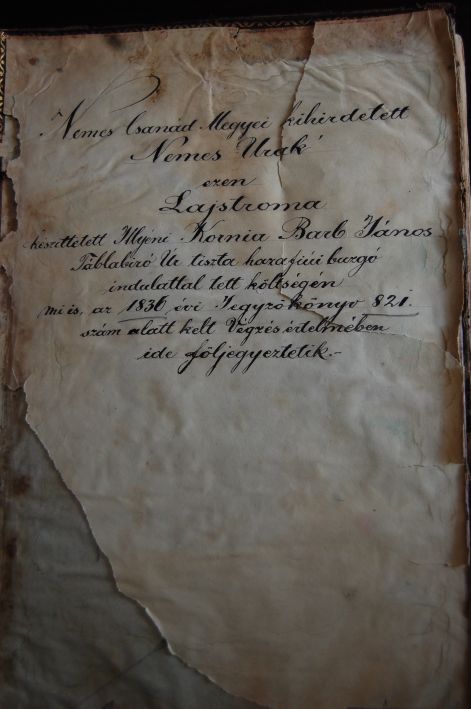 Nemes Csanád Megyei kihirdetett
Nemes Urak
ezen
Lajstroma
készíttetett Illyéni Kornia Barb János
Táblabíró Úr tiszta hazafiúi buzgó
indulattal tett költségén
mi is, az 1836 évi Jegyzőkönyv 821.
szám alatt kelt Végzés értelmében
ide följegyeztetik.-